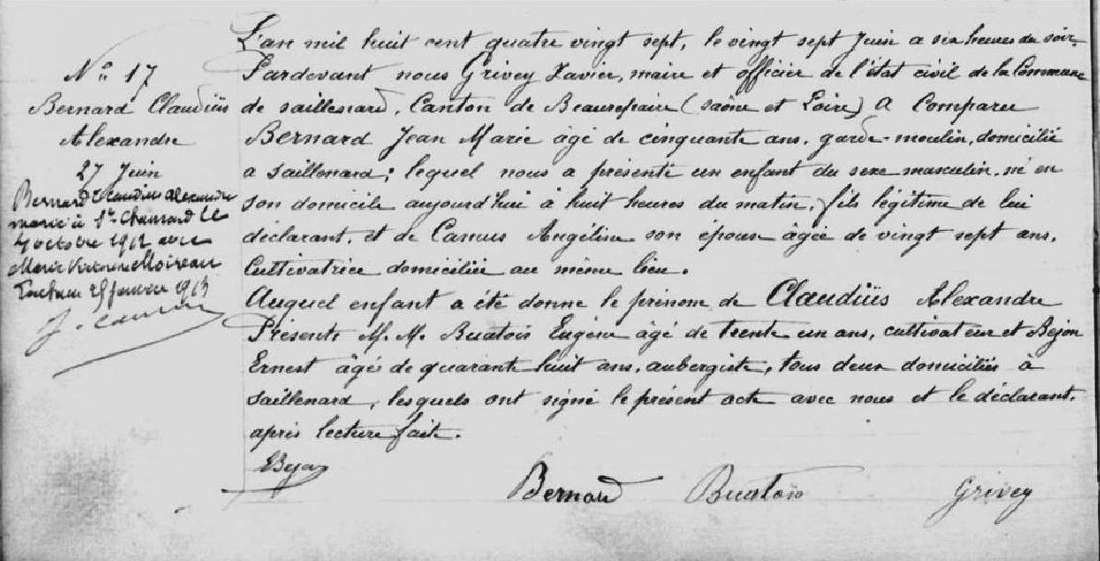 N° 17
Bernard Claudiüs
Alexandre
27 Juin
Bernard Claudius Alexandre
marié à St Chamond le
octobre 1912 avec
Marie Moireau
28 janvier 1913
L'an mil huit cent quatre vingt sept, le vingt sept Juin a six heures du soir,
Pardevant nous Grivey Xavier, maire et officier de l'état civil de la Commune
de saillenard, Canton de Beaurepaire (saône et Loire) a Comparu
Bernard Jean Marie âgé de cinquante ans, garde-moulin, domicilié
a saillenard; lequel nous a présenté un enfant du sexe masculin, né en
son domicile aujourd'hui à huit heures du matin, fils légitime de lui
déclarant, et de Camus Angéline son épouse âgée de vingt sept ans,
Cultivatrice domiciliée au même lieu.
Auquel enfant a été donné le prénom de Claudiüs Alexandre
Présents M. M. Buatois Eugène âgé de trente un ans, cultivateur et Bejon
Ernest âgé de quarante huit ans, aubergiste, tous deux domiciliés à
saillenard, lesquels ont signé le présent acte avec nous et le déclarant,
après lecture faite.
Bernard Buatois Grivey